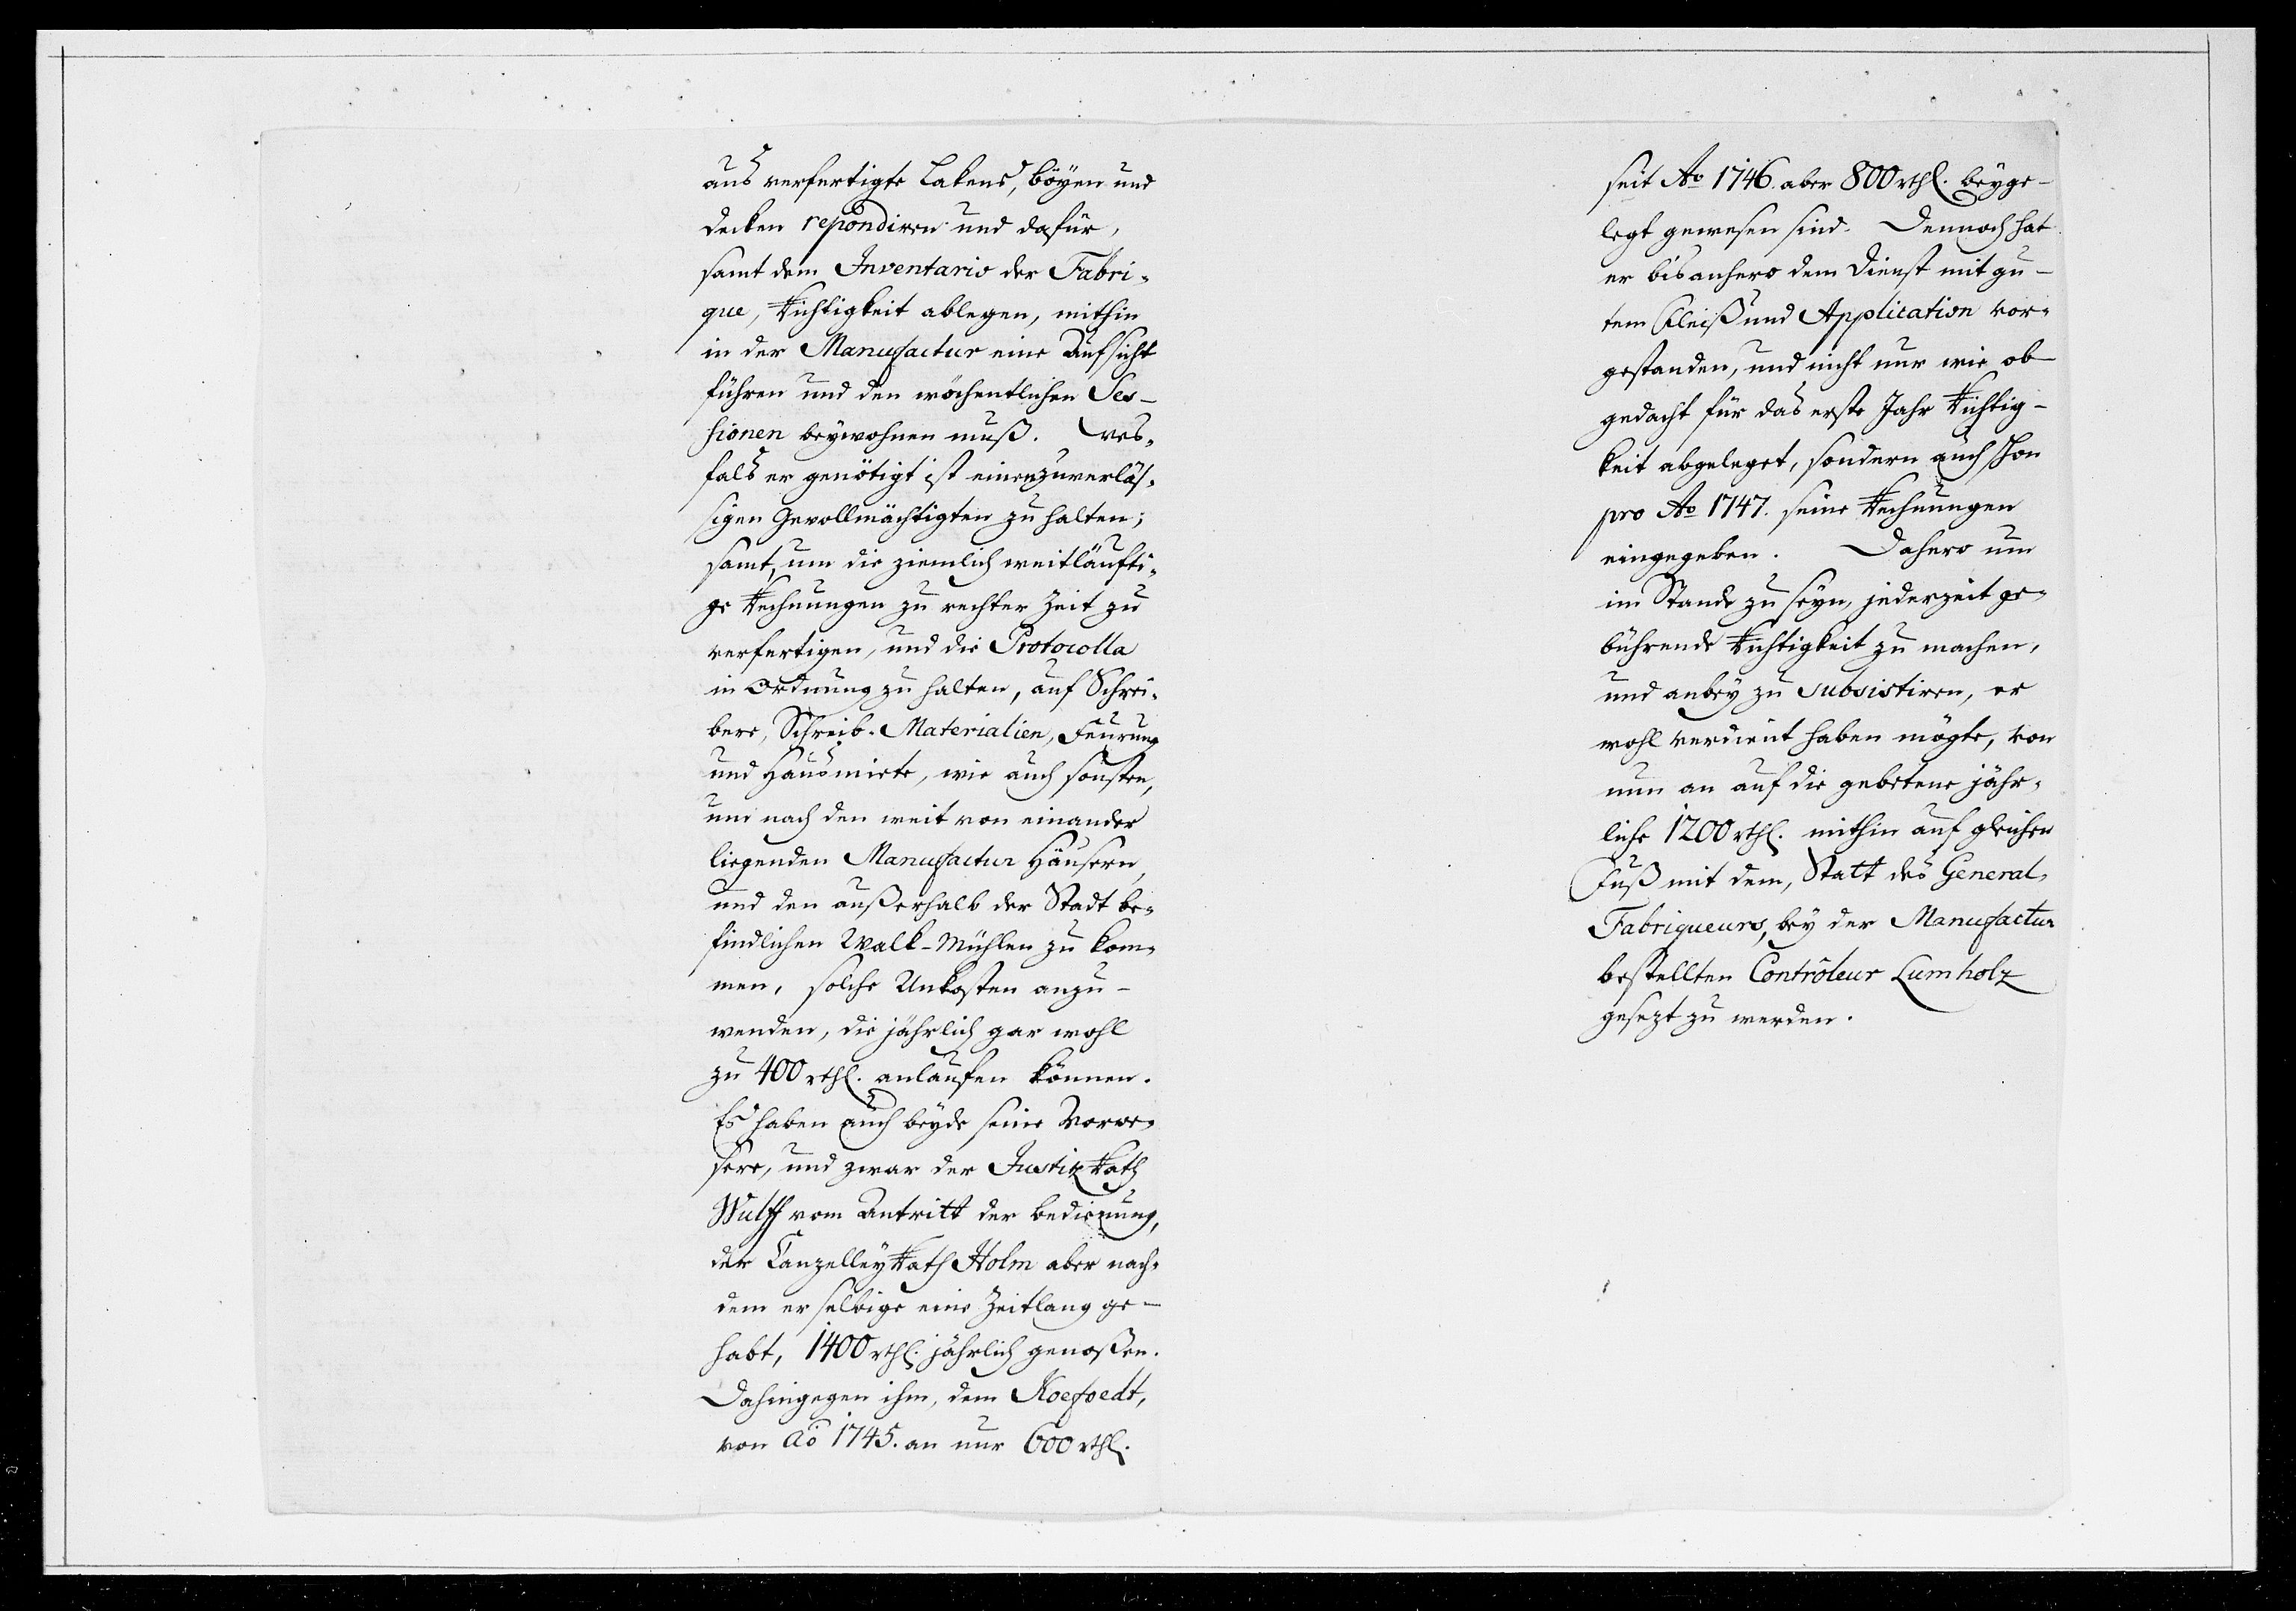 aus verfertigte Lakens, böyen und
decken repondiren und dafür,
samt dem Inventario der Fabri-
que, Richtigkeit ablegen, mithin
in der Manufactur eine Aufsicht
führen und den wöchentlichen Ses-
sionen beywohnen muß. Wes-
fals er genötigt ist einen zuverläs-
sigen Gevollmächtigten zu halten;
samt, um die ziemlich weitläufti-
ge Rechnungen zu rechter Zeit zu
verfertigen, und die Protocolla
in Ordnung zu halten, auf Schrei-
bere, Schreib-Materialien, Feurung
und Hausmiete, wie auch sonsten,
um nach den weit von einander
liegenden Manufactur Häusern,
und den außerhalb der Stadt be-
findlichen Walk-Mühlen zu kom-
men, solche Unkosten anzu-
wenden, die jährlich gar wohl
zu 400 rthl. anlaufen können.
Es haben auch beyde seine Vorwe-
sere, und zwar der Justitz Rath
Wulff vom Antritt der bedienung,
der Canzelley Rath Holm aber nach-
dem er selbige eine Zeitlang ge-
habt, 1400 rthl. jährlich genoßen.
Dahingegen ihm, dem Koefoedt,
von Ao 1745. an nur 600 rthl.
seit Ao 1746. aber 800 rthl. beyge-
legt gewesen sind. Dennoch hat
er bis anhero dem Dienst mit gu-
tem Fleiß und Application vor-
gestanden, und nicht nur wie ob-
gedacht für das erste Jahr Richtig-
keit abgeleget, sondern auch schon
pro Ao 1747. seine Rechnungen
eingegeben. Dahero um
im Stande zu seyn, jederzeit ge-
bührende Richtigkeit zu machen,
und anbey zu subsistiren, er
wohl verdient haben mögte, von
nun an auf die gebetene jähr-
liche 1200 rthl. mithin auf gleichen
Fuß mit dem, Statt des General-
Fabriqueurs, bey der Manufactur
bestellten Contrôleur Lumholz
gesezt zu werden.